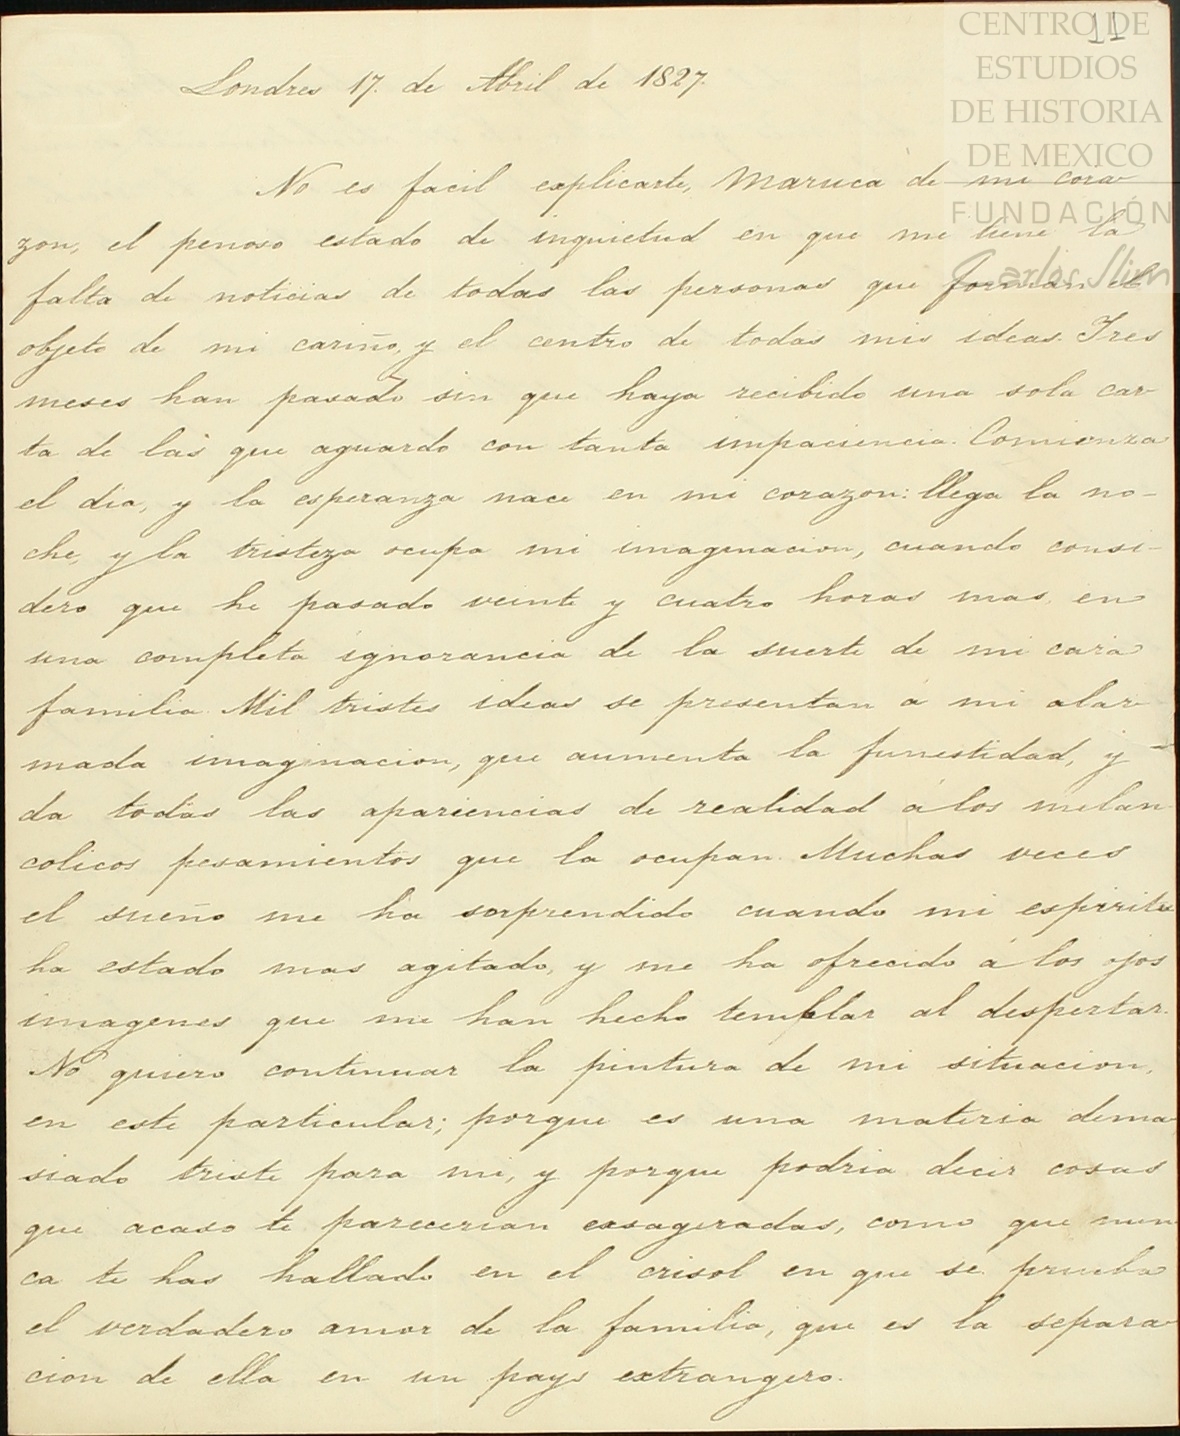 11
CENTRO DE
ESTUDIOS
DE HISTORIA
DE MEXICO
FUNDACIÓN
Carlos Slim
Londres 17. de Abril de 1827.
No es facil explicarte, Maruca de mi cora
zon, el penoso estado de inquietud en que me tiene la
falta de noticias de todas las personas que forman el
objeto de mi cariño, y el centro de todas mis ideas. Tres
meses han pasado sin que haya recibido una sola car-
ta de las que aguardo con tanta impaciencia. Comienza
el dia, y la esperanza nace en mi corazon: llega la no-
che, y la tristeza ocupa mi imaginacion, cuando consi-
dero que he pasado veinte y cuatro horas mas en
una completa ignorancia de la suerte de mi cara
familia. Mil tristes ideas se presentan á mi alar-
mada imaginacion, que aumenta la funestidad, y
da todas las apariencias de realidad á los melan
colicos pesamientos que la ocupan. Muchas veces
el sueño me ha sorprendido cuando mi espiritu
ha estado mas agitado, y me ha ofrecido á los ojos
imagenes que me han hecho temblar al despertar.
No quiero continuar la pintura de mi situacion,
en este particular; porque es una materia dema
siado triste para mi, y porque podria decir cosas
que acaso te parecerian exsageradas, como que nun
ca te has hallado en el crisol en que se prueba
el verdadero amor de la familia, que es la separa-
cion de ella en un pays extrangero.